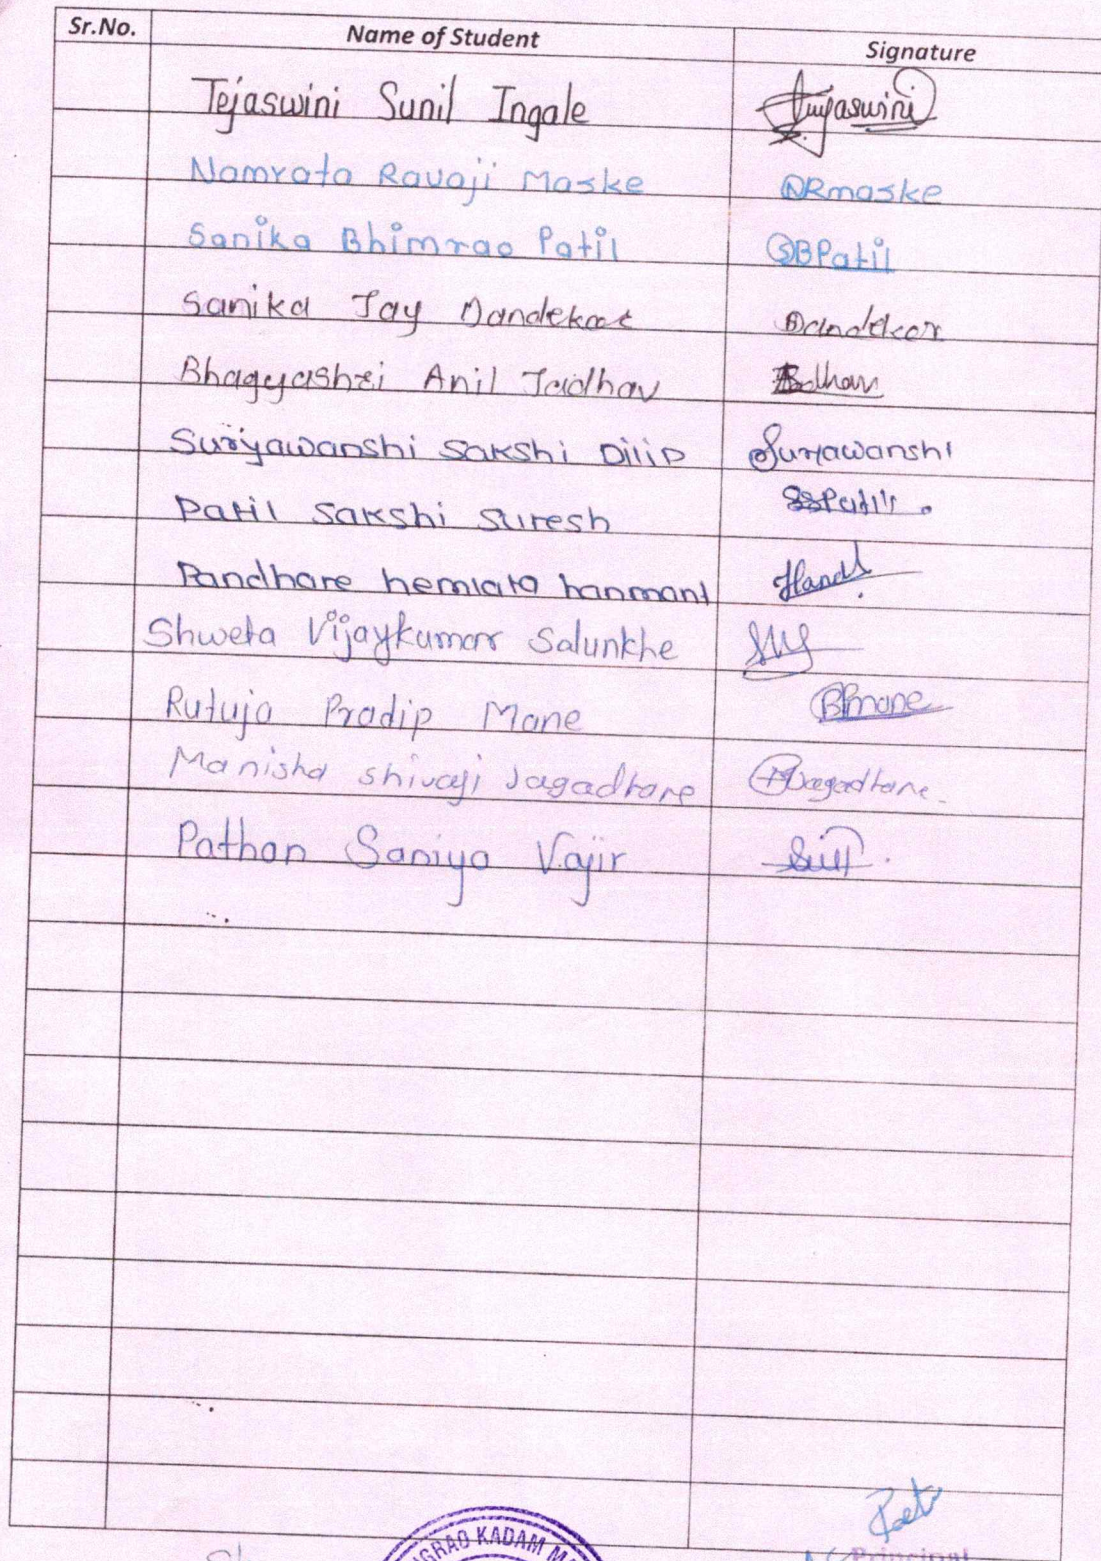 Sr.No. Name of Student Signature
Tejaswini Sunil Ingale Tejaswini
Namrata Ravaji Maske NRmaske
Sanika Bhimrao Patil SBPatil
Sanika Jay Dandekar Dandekar
Bhagyashri Anil Jadhav
Suryawanshi Sakshi Dilip Suryawanshi
Patil Sakshi Suresh SSPatil.
Pandhare hemlata hanmant
Shweta Vijaykumar Salunkhe
Rutuja Pradip Mane
Manisha shivaji Jagadhane Jagadhane
Pathan Saniya Vajir
GRAO KADAM
Principal